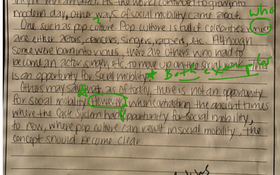 modern day, other ways of social mobility came about.
who
One such as pop culture. Pop culture is full of celebrities which
are either actors, dancers, singers, rappers, etc. Though
some were born into wealth, there are others who had to
become an actor, singer, etc. to move up on the social rank. This
is an opportunity for social mobility
Others may say that as of today, there is not an opportunity
for social mobility. However, when comparing the ancient times
where the Caste System had opportunity for social mobility,
to now, where pop culture can result in social mobility, the
concept should become clear.